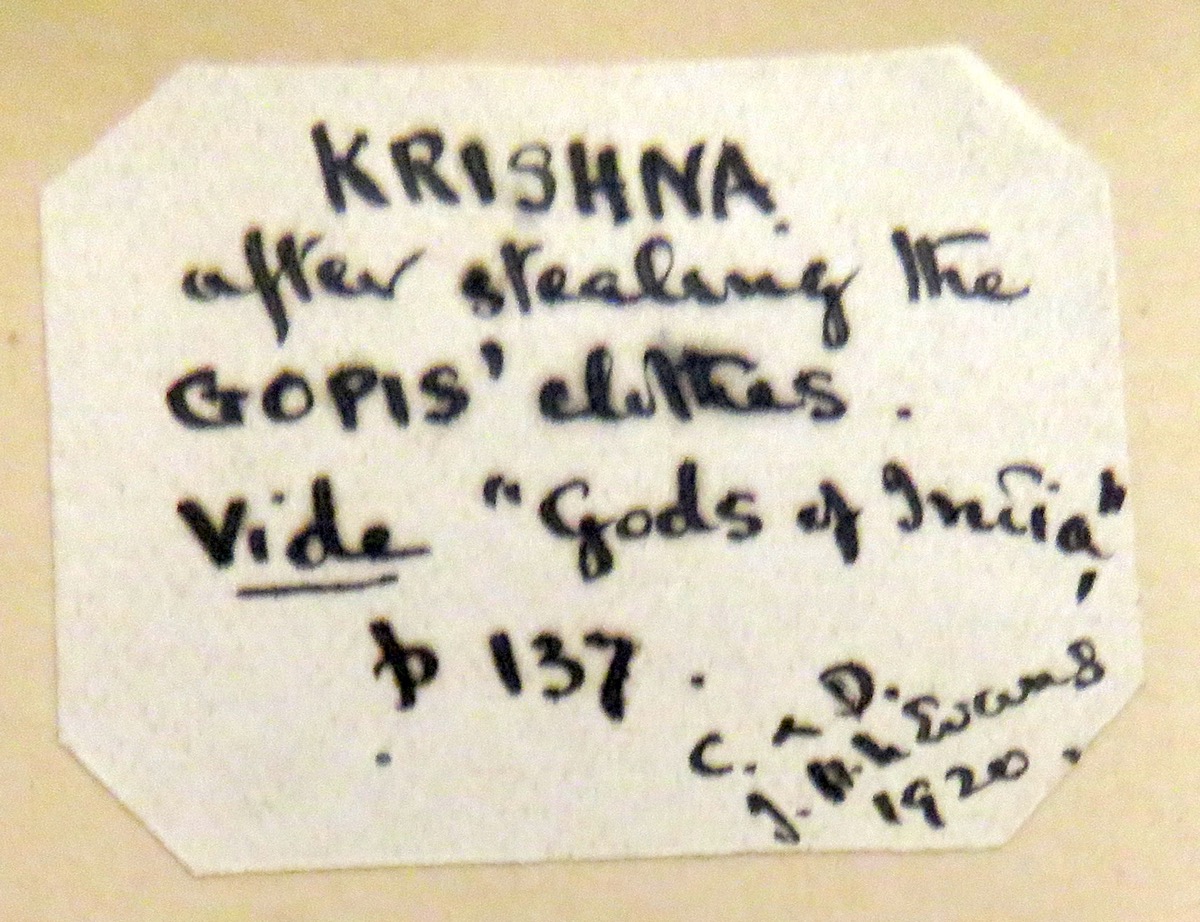 KRISHNA
after stealing the
GOPIS' clothes.
Vide "Gods of India",
p 137.
C. & D.
J. H. Evans
1920.